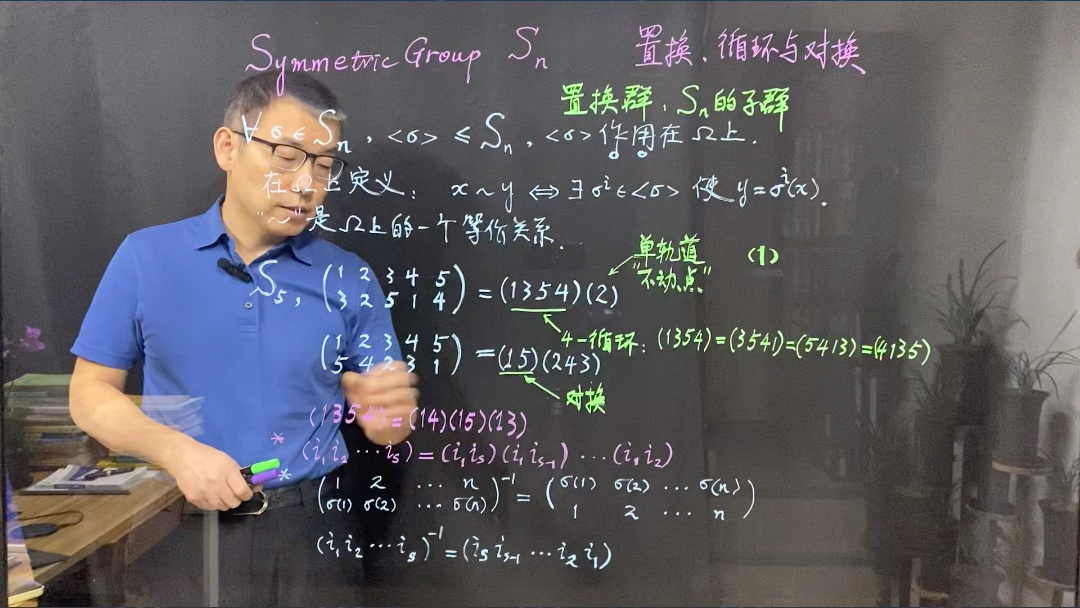 Symmetric Group Sₙ 置换、循环与对换
置换群：Sₙ的子群
∀σ∈Sₙ，<σ> ≤ Sₙ，<σ>作用在Ω上．
在Ω上定义：x~y ⇔ ∃σⁱ∈<σ> 使 y=σⁱ(x)．
"~"是Ω上的一个等价关系．
"单轨道 (1)
不动点"
S₅，(1 2 3 4 5
3 2 5 1 4) = (1354)(2)
4-循环：(1354)=(3541)=(5413)=(4135)
(1 2 3 4 5
5 4 2 3 1) = (15)(243)
对换
(1354)=(14)(15)(13)
* (i₁i₂⋯iₛ)=(i₁iₛ)(i₁iₛ₋₁)⋯(i₁i₂)
* (1 2 ⋯ n
σ(1) σ(2) ⋯ σ(n))⁻¹ = (σ(1) σ(2) ⋯ σ(n)
1 2 ⋯ n)
(i₁i₂⋯iₛ)⁻¹=(iₛiₛ₋₁⋯i₂i₁)